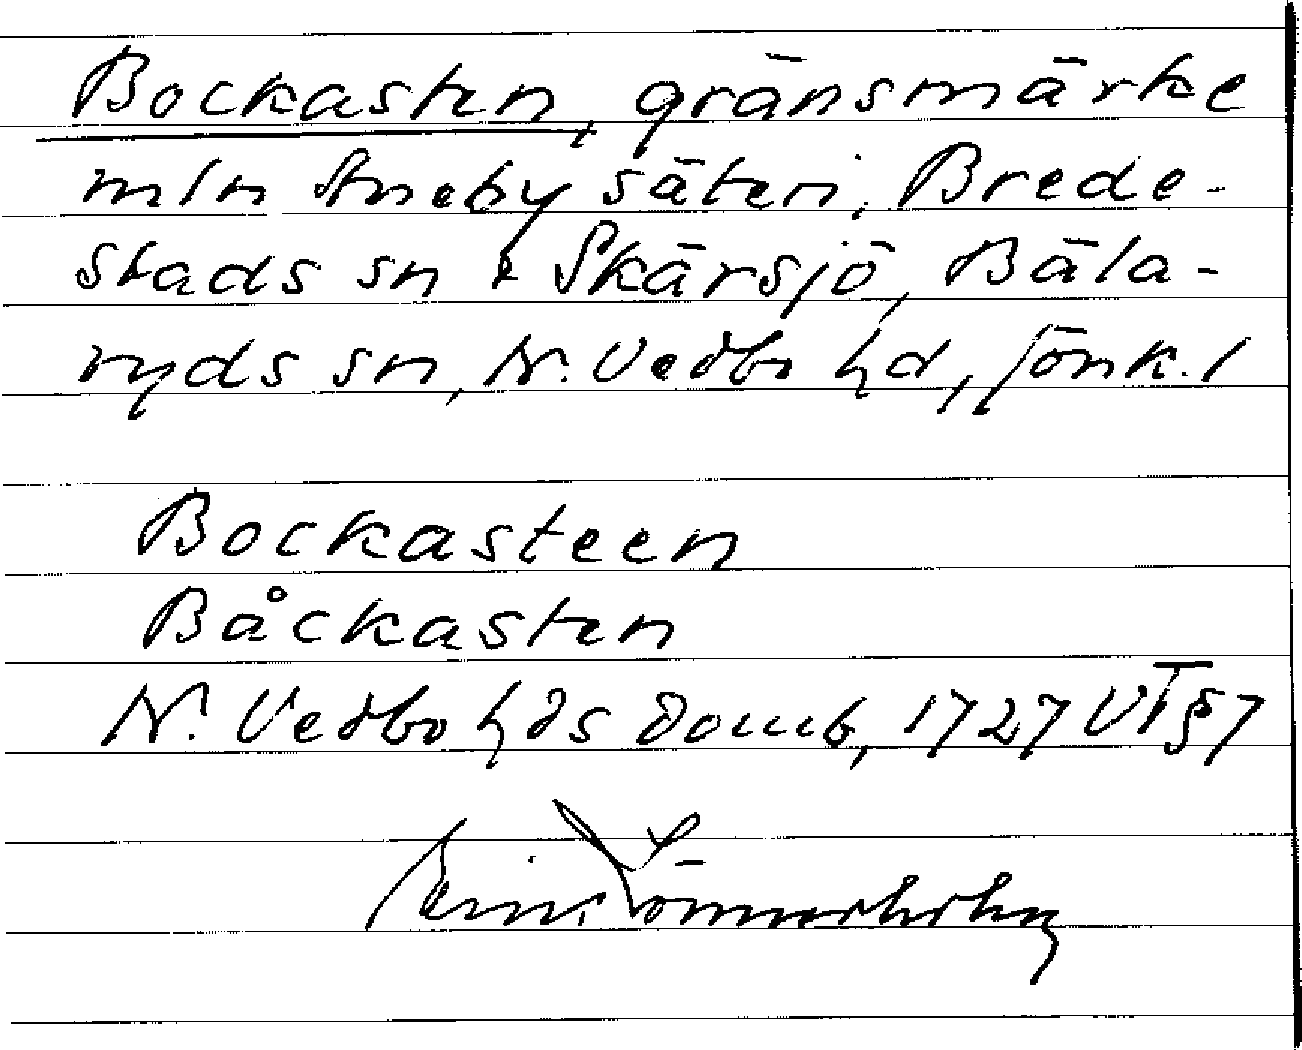 Bockasten, gränsmärke
mln Aneby säteri, Brede-
stads sn & Skärsjö, Bäla-
ryds sn, N. Vedbo hd, Jönk. l
Bockasteen
Båckasten
N. Vedbo hds domb, 1727 VT §7